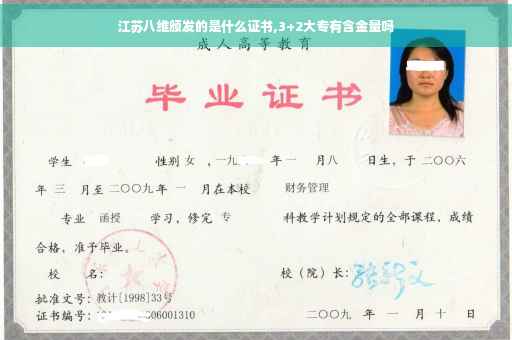 江苏八维颁发的是什么证书,3+2大专有含金量吗
成人高等教育
毕业证书
学生 性别 女 ，一九 年一 月八 日生，于二〇〇六
年 三 月至二〇〇九年 一 月在本校 财务管理
专业 函授 学习，修完 专 科教学计划规定的全部课程，成绩
合格，准予毕业。
校 名： 校（院）长：
批准文号：教计[1998]33号
证书编号： 06001310 二〇〇九 年 一 月 十 日